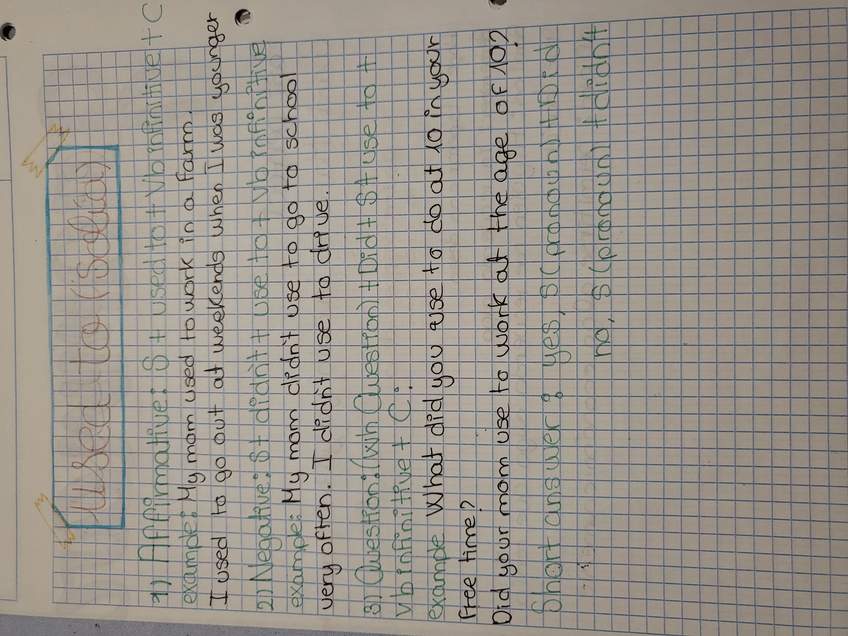 used to (solía)
1) Affirmative: S + used to + Vb infinitive + C
example: My mom used to work in a farm.
I used to go out at weekends when I was younger
2) Negative: S + didn't + use to + Vb infinitive
example: My mom didn't use to go to school
very often. I didn't use to drive.
3) Question: (wh Question) + Did + S + use to +
Vb infinitive + C:
example What did you use to do at 10 in your
free time?
Did your mom use to work at the age of 10?
Short answer: yes, S (pronoun) + Did
no, S (pronoun) + didn't